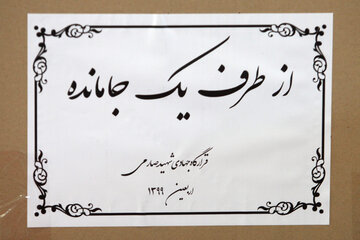 از طرف یک جامانده
قرارگاه جهادی شهید صارمی
اربعین ۱۳۹۹